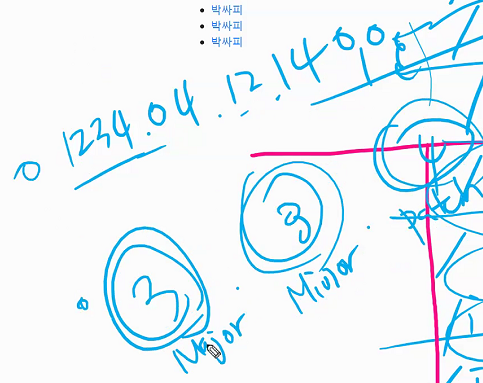 박싸피
박싸피
박싸피
1234.04.12.1400
3 . 3 . 4
Major Minor patch